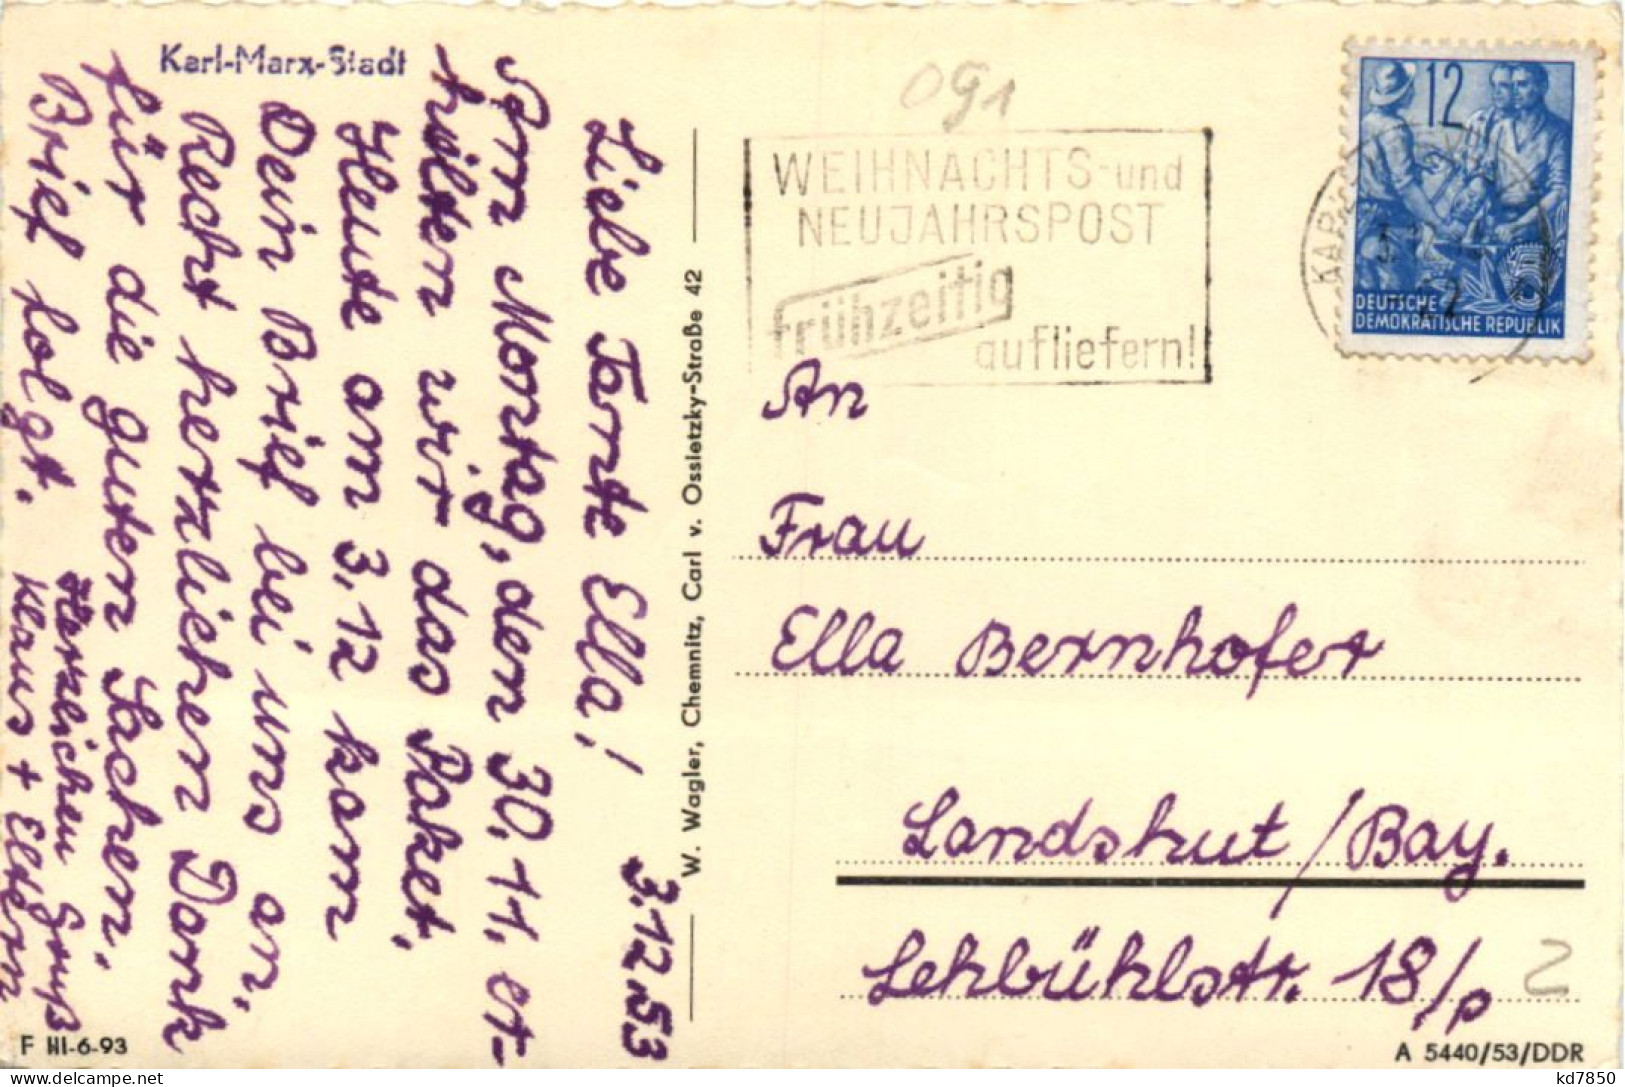 Karl-Marx-Stadt
3.12.53
Liebe Tante Ella!
Am Montag, den 30.11. er-
hielten wir das Paket.
Heute am 3.12 kam
Dein Brief bei uns an.
Recht herzlichen Dank
für die guten Sachen.
Brief folgt.
Herzlichen Gruß
Klaus + Eltern
F III-6-93
W. Wagler, Chemnitz, Carl v. Ossietzky-Straße 42
091
WEIHNACHTS-und
NEUJAHRSPOST
frühzeitig
aufliefern!
12
DEUTSCHE
DEMOKRATISCHE REPUBLIK
An
Frau
Ella Bernhofer
Landshut/Bay.
Lehbühlstr. 18/p
2
A 5440/53/DDR
kd7850